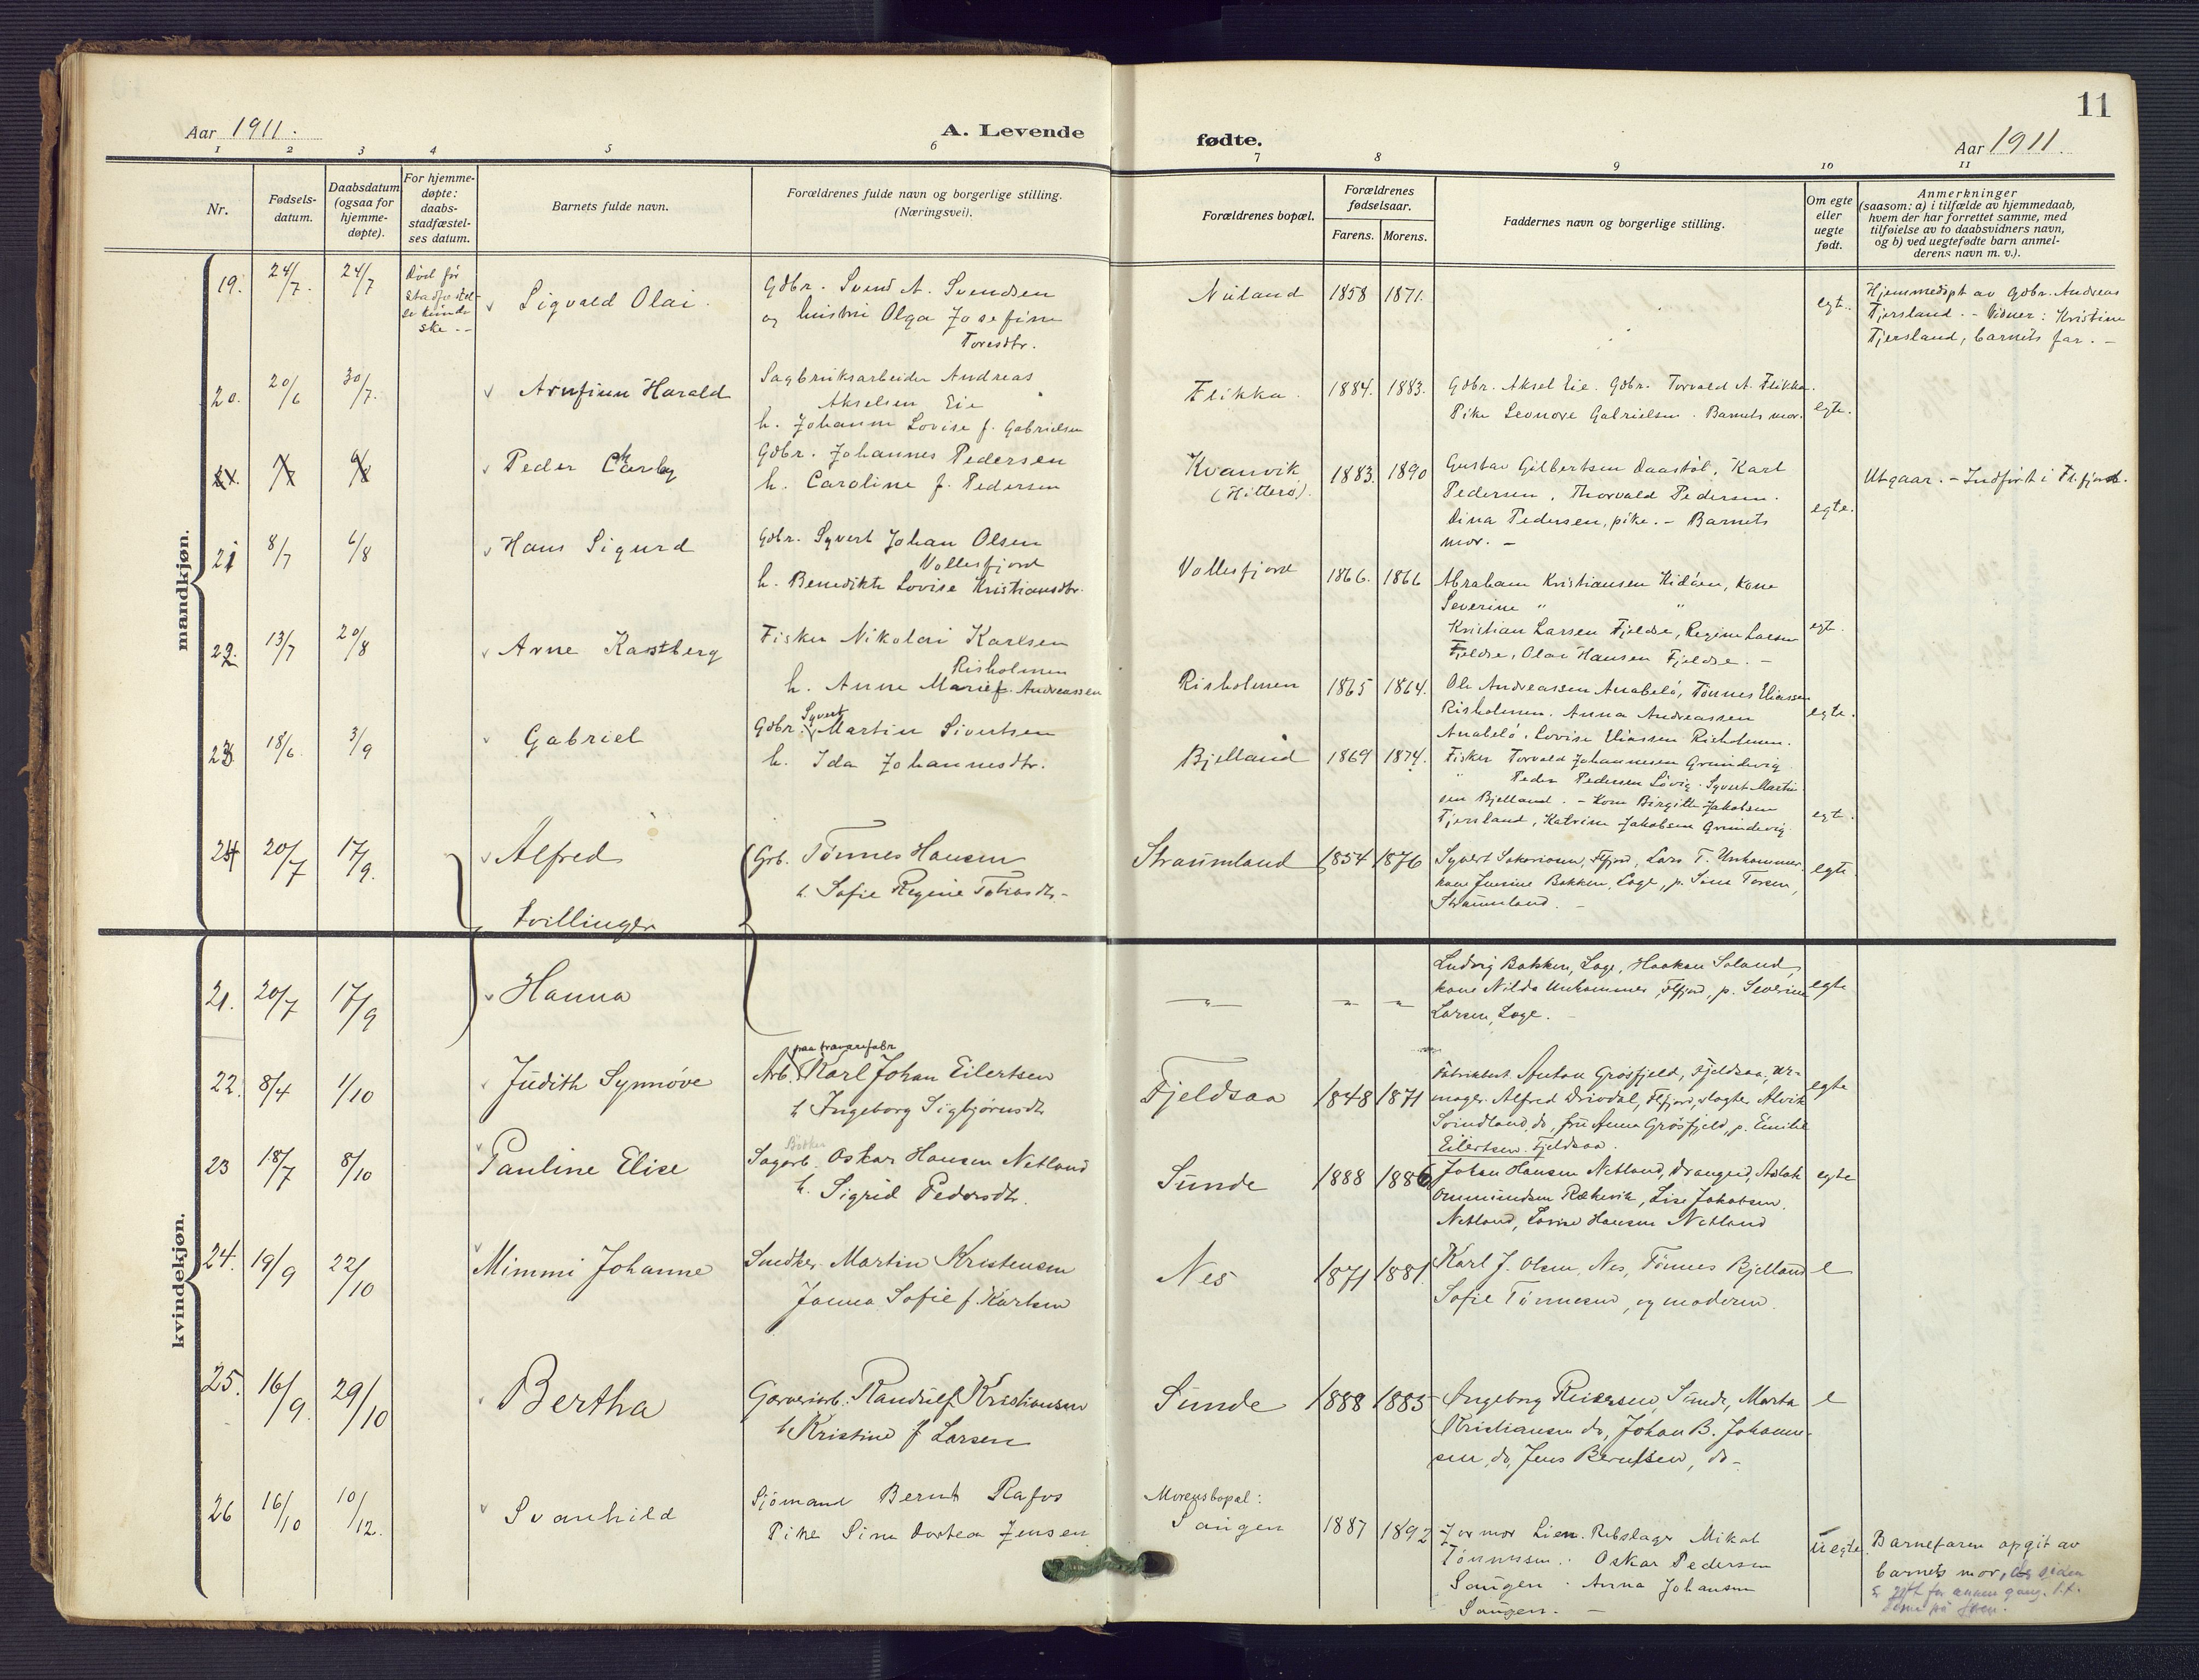 11
Aar 1911.
A. Levende
fødte.
Aar 1911.
1 2 3 4 5 6 7 8 9 10 11
Nr.
Fødsels-
datum.
Daabsdatum
(ogsaa for
hjemme-
døpte).
For hjemme-
døpte:
daabs-
stadfæstel-
ses datum.
Barnets fulde navn.
Forældrenes fulde navn og borgerlige stilling.
(Næringsvei).
Forældrenes bopæl.
Forældrenes
fødselsaar.
Farens. Morens.
Faddernes navn og borgerlige stilling.
Om egte
eller
uegte
født.
Anmerkninger
(saasom: a) i tilfælde av hjemmedaab,
hvem der har forrettet samme, med
tilføielse av to daabsvidners navn,
og b) ved uegtefødte barn anmel-
derens navn m. v.).
mandkjøn.
19. 24/7. 24/7
Død før
ske
Sigvald Olai.
Gdbr. Svend A. Svendsen
og hustru Olga Josefine
Toresdtr.
Nuland 1858 1871.
egt.
Hjemmedøpt av Gdbr. Andreas
Tjersland. - Vidner: Kristine
Tjersland, barnets far. -
20. 20/6 30/7.
Arnfinn Harald
Sagbruksarbeider Andreas
Akselsen Eie
h. Johanne Lovise f. Gabrielsen
Flikka. 1884. 1883.
Gdbr. Aksel Eie. Gdbr. Torvald A. Flikka.
Pike Leonore Gabrielsen. Barnets mor.
egte.
Peder
Gdbr. Johannes Pedersen
h. Caroline f. Pedersen
Kvanvik
(Hitterø). 1883. 1890
Gustav Gilbertsen Daastøl, Karl
Pedersen, Thorvald Pedersen.
Dina Pedersen, pike. - Barnets
mor. -
egte.
Utgaar. - Indført i Fl.fjord.
21 8/7 6/8
Hans Sigurd
Gdbr. Syvert Johan Olsen
Vollesfjord
h. Benedikte Lovise Kristiansdtr.
Vollesfjord 1866. 1866
Abraham Kristiansen Kidåen, Kone
Severine " "
Kristian Larsen Fjeldse, Regine Larsen
Fjeldse, Olai Hansen Fjeldse. -
egt.
22. 13/7 20/8
Arne Kastberg
Fisker Nikolai Karlsen
Risholmen
h. Anne Marie f. Andreassen
Risholmen 1865 1864.
Ole Andreassen Anabelø, Tønnes Eliassen
Risholmen. Anna Andreassen
Anabelø, Lovise Eliassen Risholmen.
egte.
23 18/6. 3/9
Gabriel
Syvert
Gdbr. Martin Sivertsen
h. Ida Johannesdtr.
Bjelland 1869 1874.
Fisker Torvald Johannesen Grundevig
" Peder Pedersen Løvig. Syvert Marti-
sen Bjelland. - Kone Birgitte Jakobsen
Tjersland, Katrine Jakobsen Grundevig.
egt.
24 20/7 17/9.
Alfred
Grb. Tønnes Hansen
h. Sofie Regine
Straumland 1854 1876
Syvert Sakariasen, Flfjord, Lars T. Urkammer
kone Jensine Bakken, Loge, p. Sine Torsen,
Straumland. -
egte
tvillinger
kvindekjøn.
21. 20/7 17/9
Hanna
— " — — " — — " —
Ludvig Bakken, Loge, Haakon Soland,
kone Nilda Unhammer, Flfjord, p. Severine
Larsen, Loge. -
egte
22. 8/4 1/10
Judith Synnøve
paa trævarefabr
Arb. Karl Johan Eilertsen
h Ingeborg Sigbjørnsdtr
Fjeldsaa 1848 1871
Fabrikbest. Anton Grøsfjeld, Fjeldsaa, ur-
mager Alfred Drivdal, Flfjord, slagter Alvik
Svindland, do, fru Anna Grøsfjeld, p. Emilie
Eilertsen Fjeldsaa.
egte
23 18/7 8/10
Pauline Elise
Sagarb. Oskar Hansen Netland
h. Sigrid Pedersdtr.
Sunde 1888 1886
Johan Hansen Netland, Drangeid, Aslak
Ommundsen Rækevik, Lise Jakobsen,
Netland, Lovise Hansen Netland
egte
24. 19/9 22/10
Mimmi Johanne
Snedker Martin Kristensen
Janna Sofie f. Karlsen
Nes 1871 1881
Karl J. Olsen, Nes, Tønnes Bjelland
Sofie Tønnesen, og moderen.
e
25. 16/9. 29/10
Bertha
Garveriarb. Randulf Kristiansen
h Kristine f Larsen
Sunde 1888 1885
Ingeborg Reiersen, Sunde, Marta
Kristiansen do, Johan B. Johanne-
sen, do, Jens Berntsen, do -
e
26 16/10 10/12.
Svanhild
Sjømand Bernt Rafos
Pike Sine Dortea Jensen
Morens bopæl:
Saugen 1887 1892
Jormor Lien. Rebslager Mikal
Tønnesen. Oskar Pedersen
Saugen. Anna Johansen
Saugen. -
uegte.
Barnefaren opgit av
barnets mor,